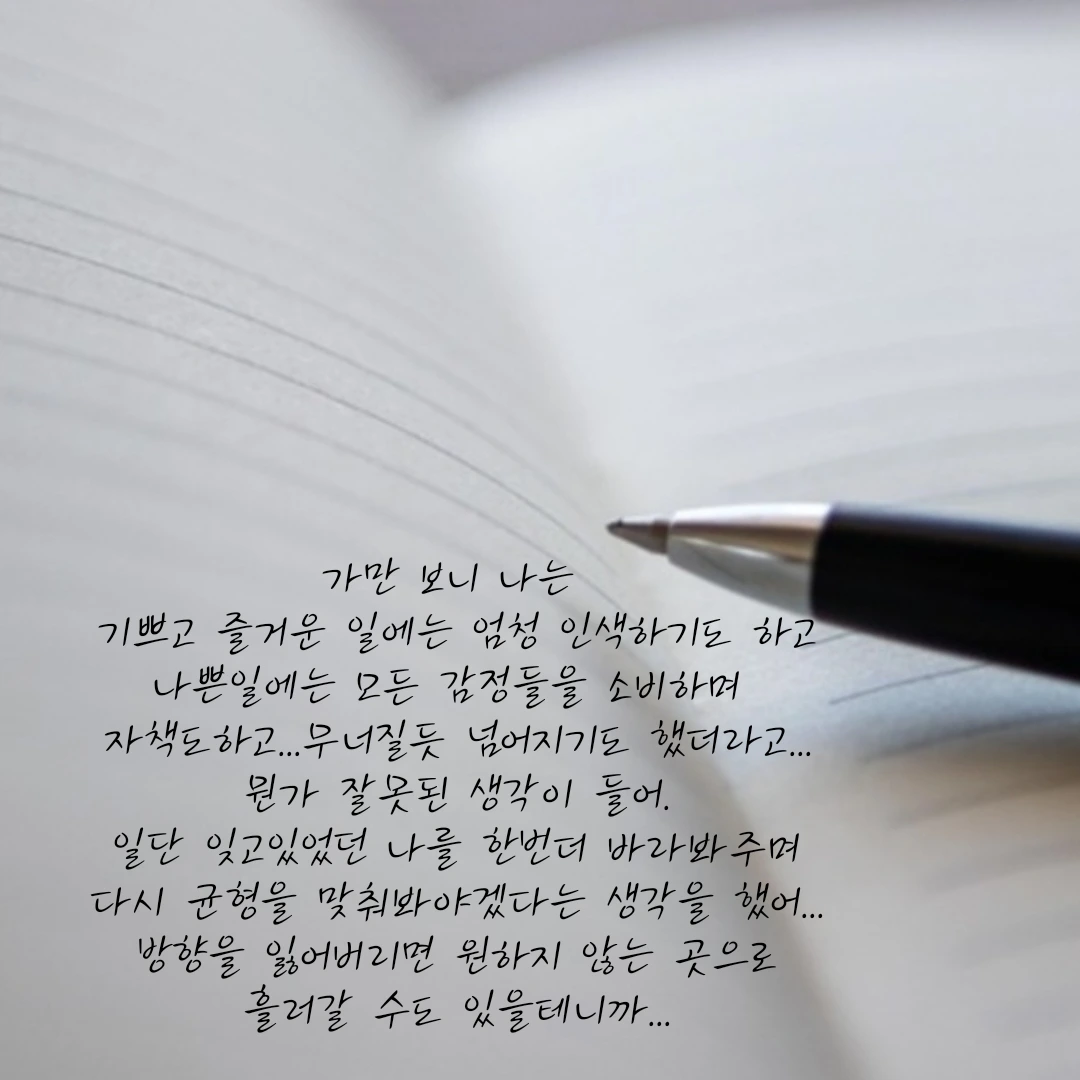 가만 보니 나는
기쁘고 즐거운 일에는 엄청 인색하기도 하고
나쁜일에는 모든 감정들을 소비하며
자책도하고...무너질듯 넘어지기도 했더라고...
뭔가 잘못된 생각이 들어.
일단 잊고있었던 나를 한번더 바라봐주며
다시 균형을 맞춰봐야겠다는 생각을 했어...
방향을 잃어버리면 원하지 않는 곳으로
흘러갈 수도 있을테니까...